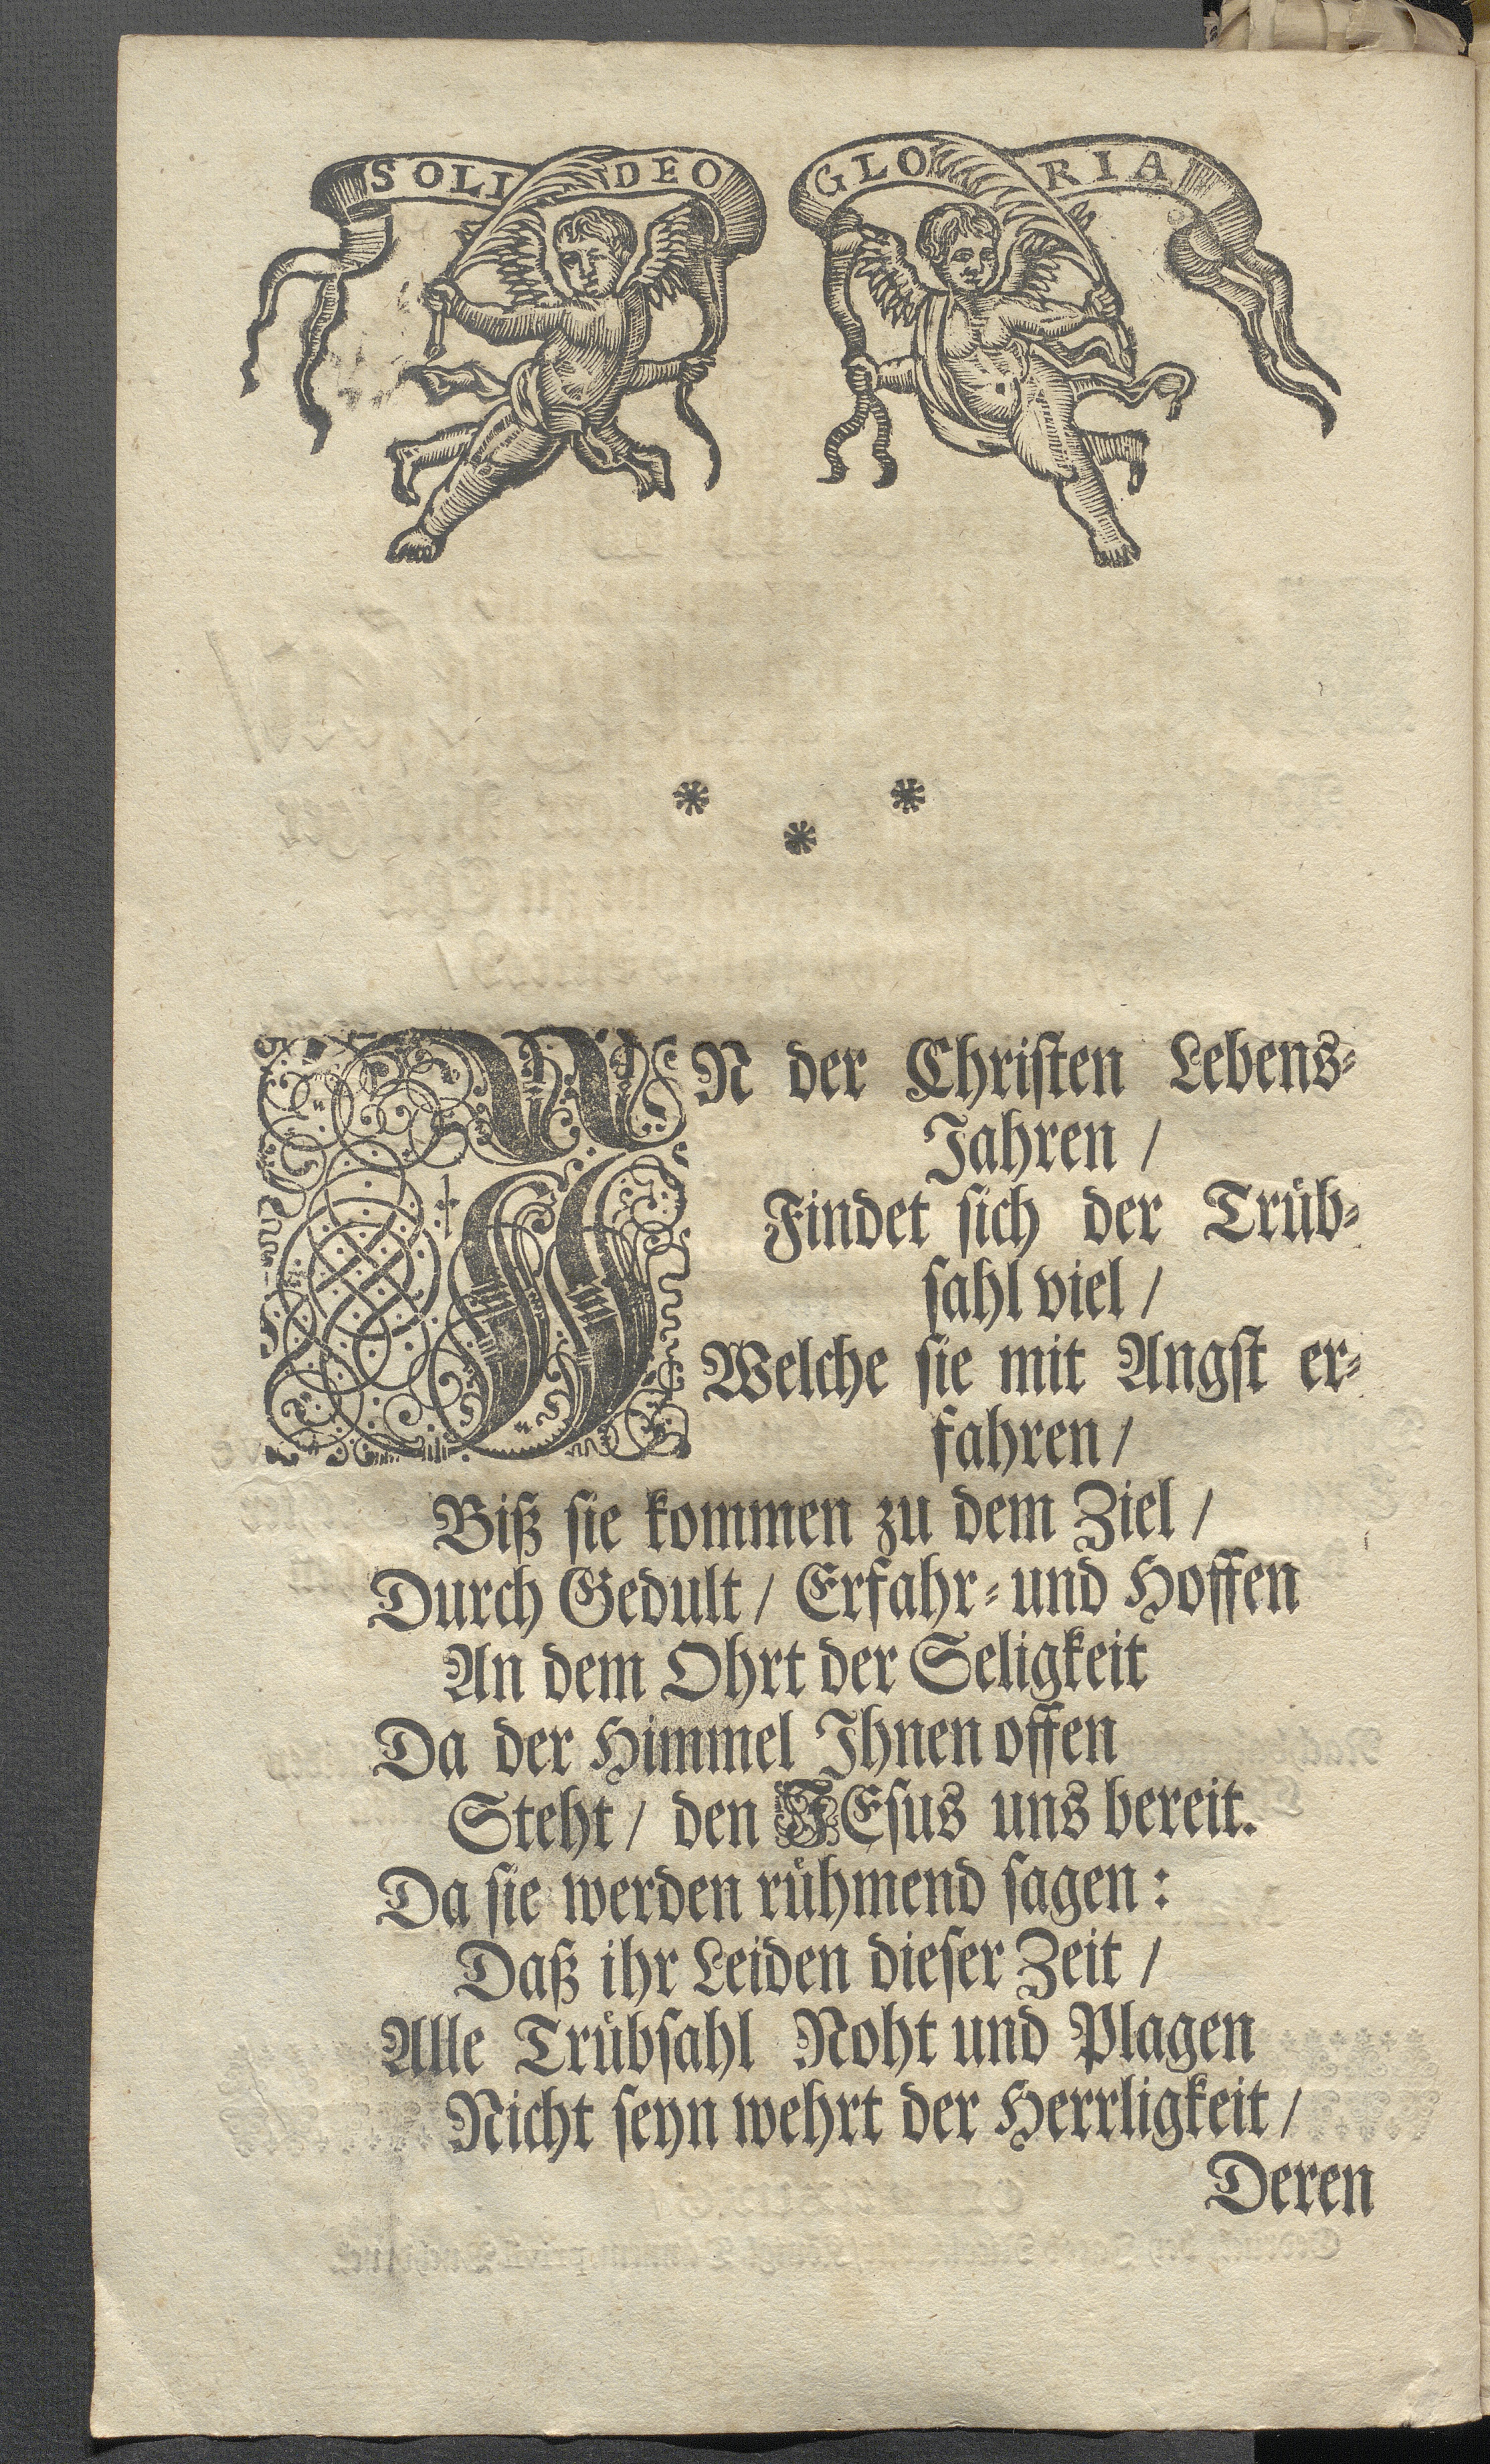 SOLI DEO GLORIA
* * *
IN der Christen Lebens-
Jahren /
Findet sich der Trüb-
sahl viel /
Welche sie mit Angst er-
fahren /
Biß sie kommen zu dem Ziel /
Durch Gedult / Erfahr- und Hoffen
An dem Ohrt der Seligkeit
Da der Himmel Ihnen offen
Steht / den JEsus uns bereit.
Da sie werden rühmend sagen:
Daß ihr Leiden dieser Zeit /
Alle Trübsahl Noht und Plagen
Nicht seyn wehrt der Herrligkeit /
Deren